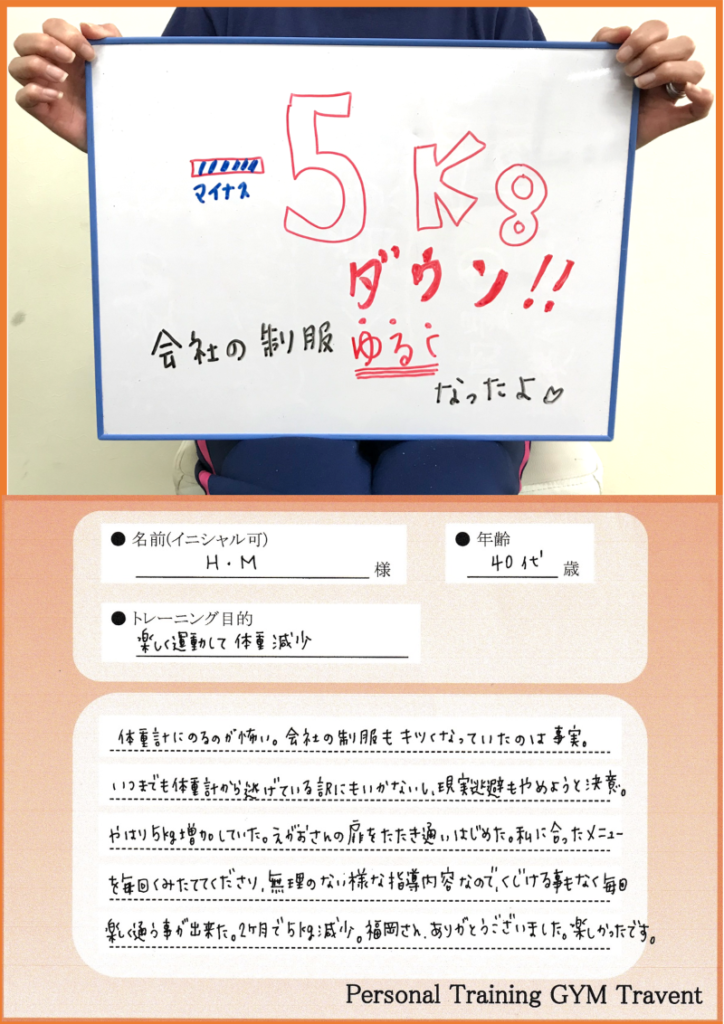 5Kg
マイナス
ダウン!!
会社の制服 ゆるく
なったよ♡
● 名前(イニシャル可)
H・M 様
● 年齢
40代 歳
● トレーニング目的
楽しく運動して体重減少
体重計にのるのが怖い。会社の制服もキツくなっていたのは事実。
いつまでも体重計から逃げている訳にもいかないし、現実逃避もやめようと決意。
やはり5kg増加していた。えがおさんの扉をたたき通いはじめた。私に合ったメニュー
を毎回くみたててくださり、無理のない様な指導内容なので、くじける事もなく毎回
楽しく通う事が出来た。2ヶ月で5kg減少。福岡さん、ありがとうございました。楽しかったです。
Personal Training GYM Travent